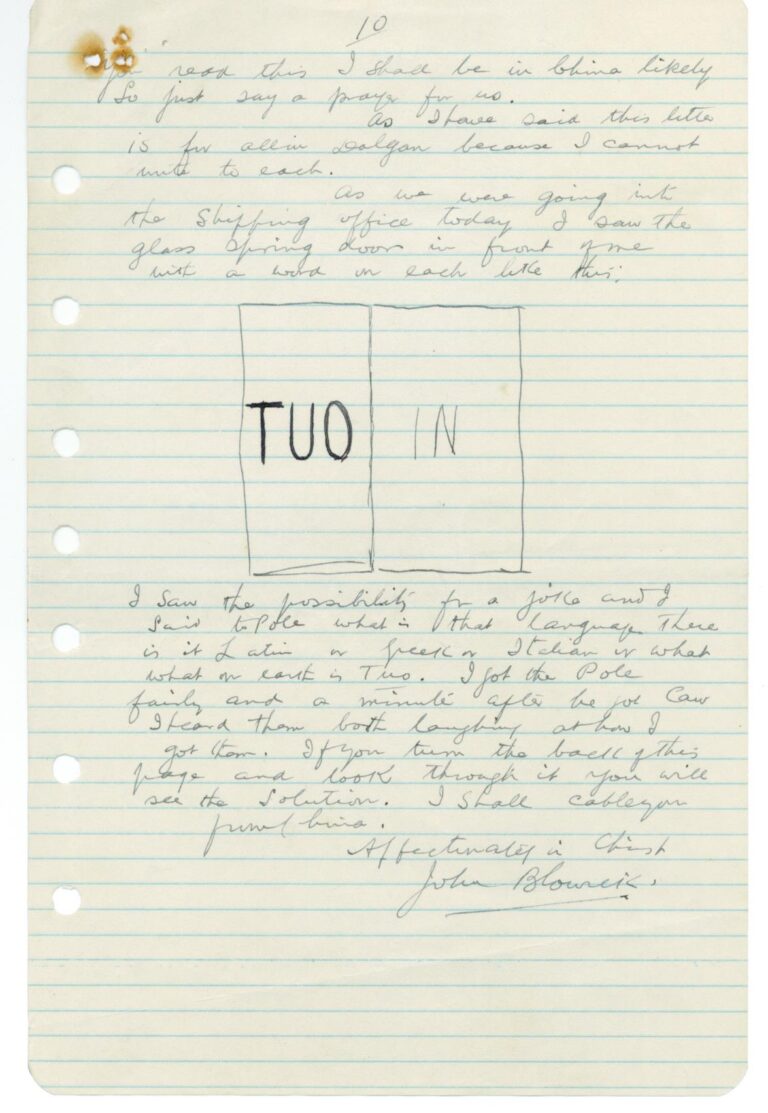 10
you read this I shall be in China likely
So just say a prayer for us.
As I have said this letter
is for all in Dalgan because I cannot
write to each.
As we were going into
the Shipping office today I saw the
glass spring door in front of me
with a word on each like this:
TUO IN
I saw the possibility for a joke and I
said to Pole what is that language there
is it Latin or Greek or Italian or what
what on earth is Tuo. I got the Pole
fairly and a minute after he got Caw
I heard them both laughing at how I
got them. If you turn the back of this
page and look through it you will
see the Solution. I shall cable you
from China.
Affectionately in Christ
John Blowick.